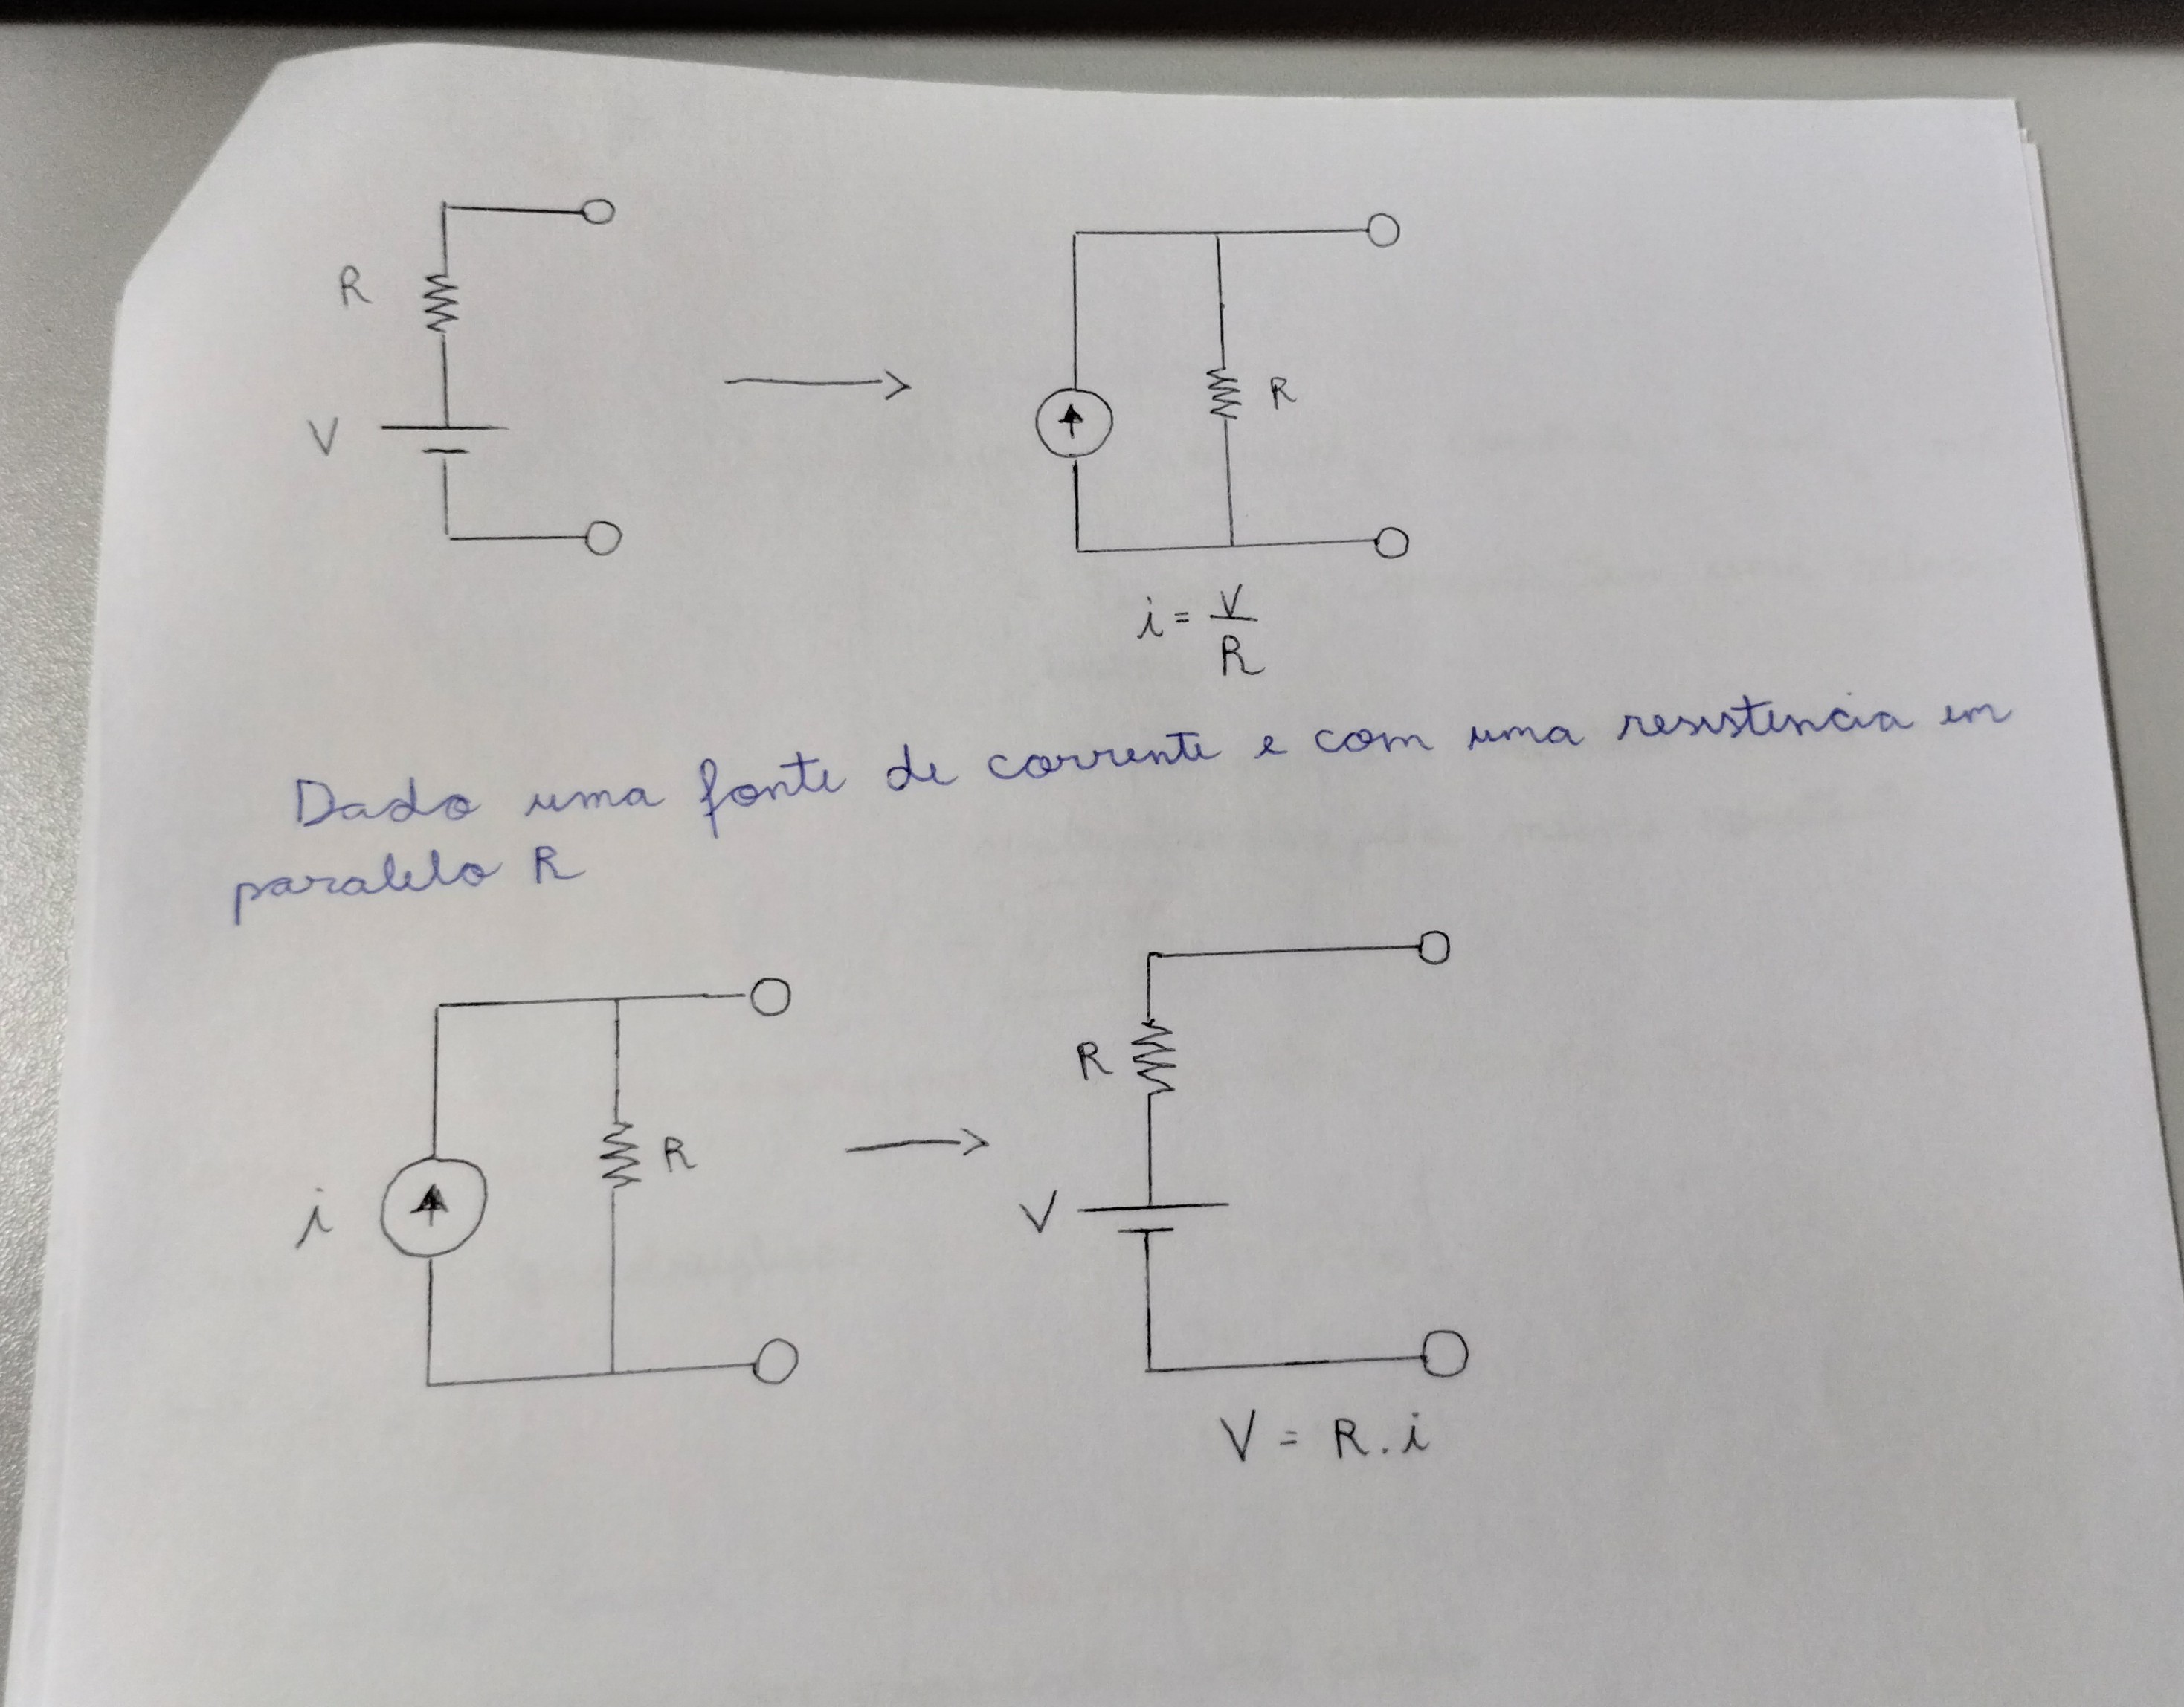 R
V
R
i = V/R
Dado uma fonte de corrente e com uma resistencia em
paralelo R
R
i
R
V
V = R . i